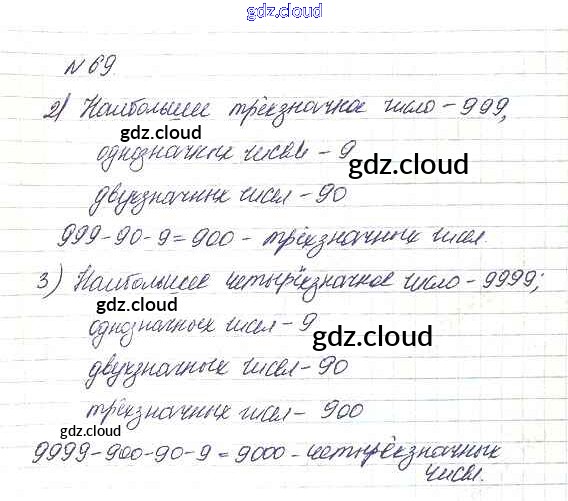 gdz.cloud
№ 69.
2) Наибольшее трёхзначное число – 999,
gdz.cloud
однозначных чисел – 9
gdz.cloud
двухзначных чисел – 90
999 – 90 – 9 = 900 – трёхзначных чисел.
3) Наибольшее четырёхзначное число – 9999;
gdz.cloud
однозначных чисел – 9
gdz.cloud
двухзначных чисел – 90
трёхзначных чисел – 900
gdz.cloud
9999 – 900 – 90 – 9 = 9000 – четырёхзначных
чисел.
gdz.cloud